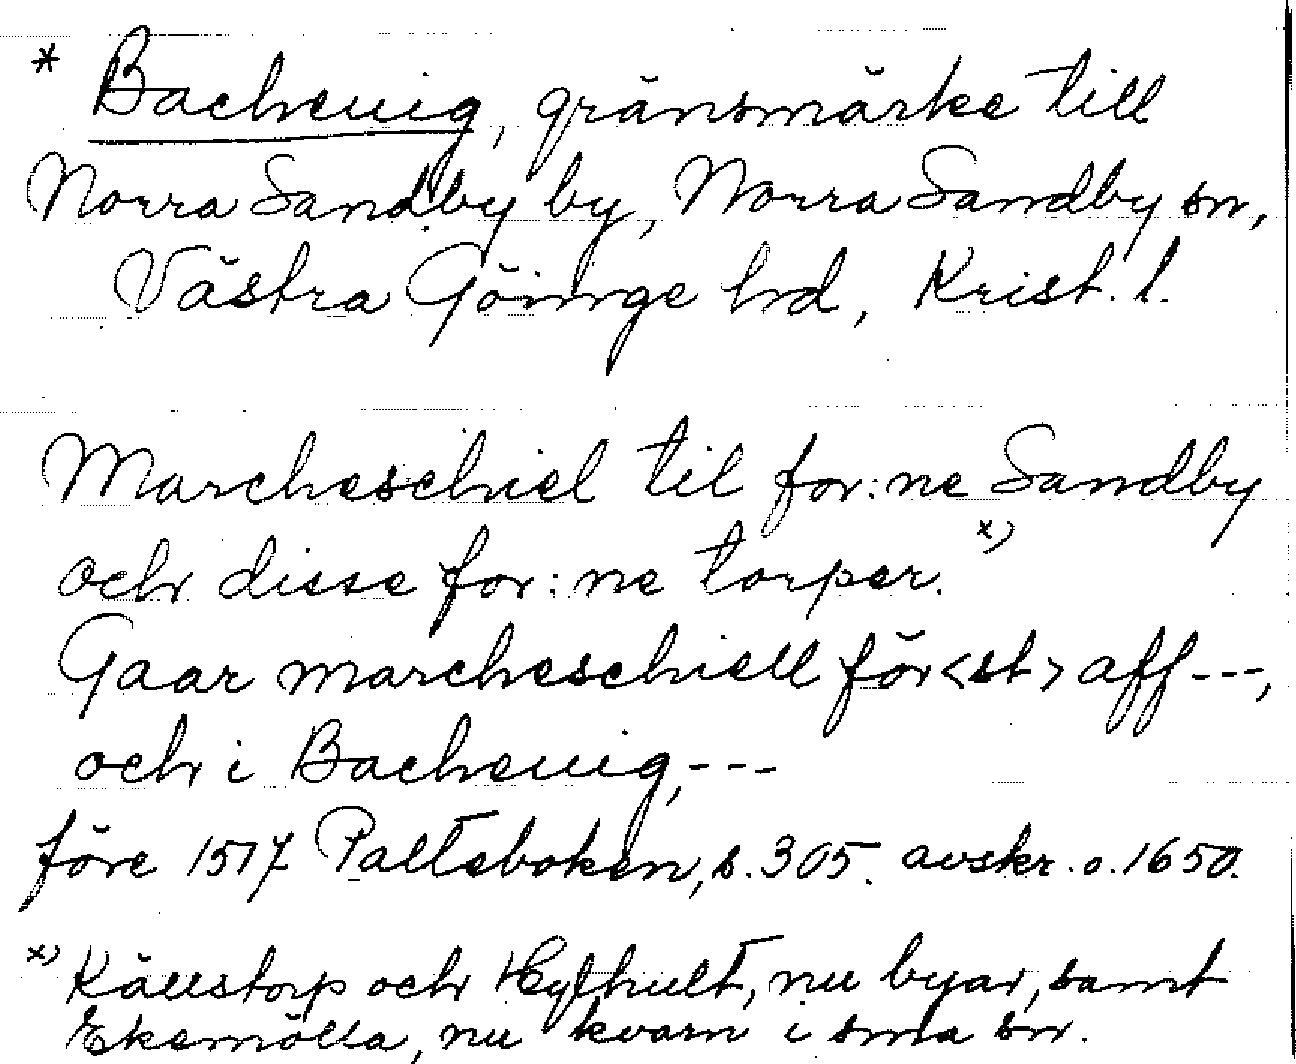 * Bacheuig, gränsmärke till
Norra Sandby by, Norra Sandby sn,
Västra Göinge hd, Krist. l.
Marcheschiel til for:ne Sandby
och disse for:ne torper. x)
Gaar marcheschiell för<st> aff ---,
och i Bacheuig, ---
före 1517 Paltseboken, s. 305. avskr. o. 1650.
x) Källstorp och Hylhult, nu byar, samt
Ekemölla, nu kvarn i sma sn.